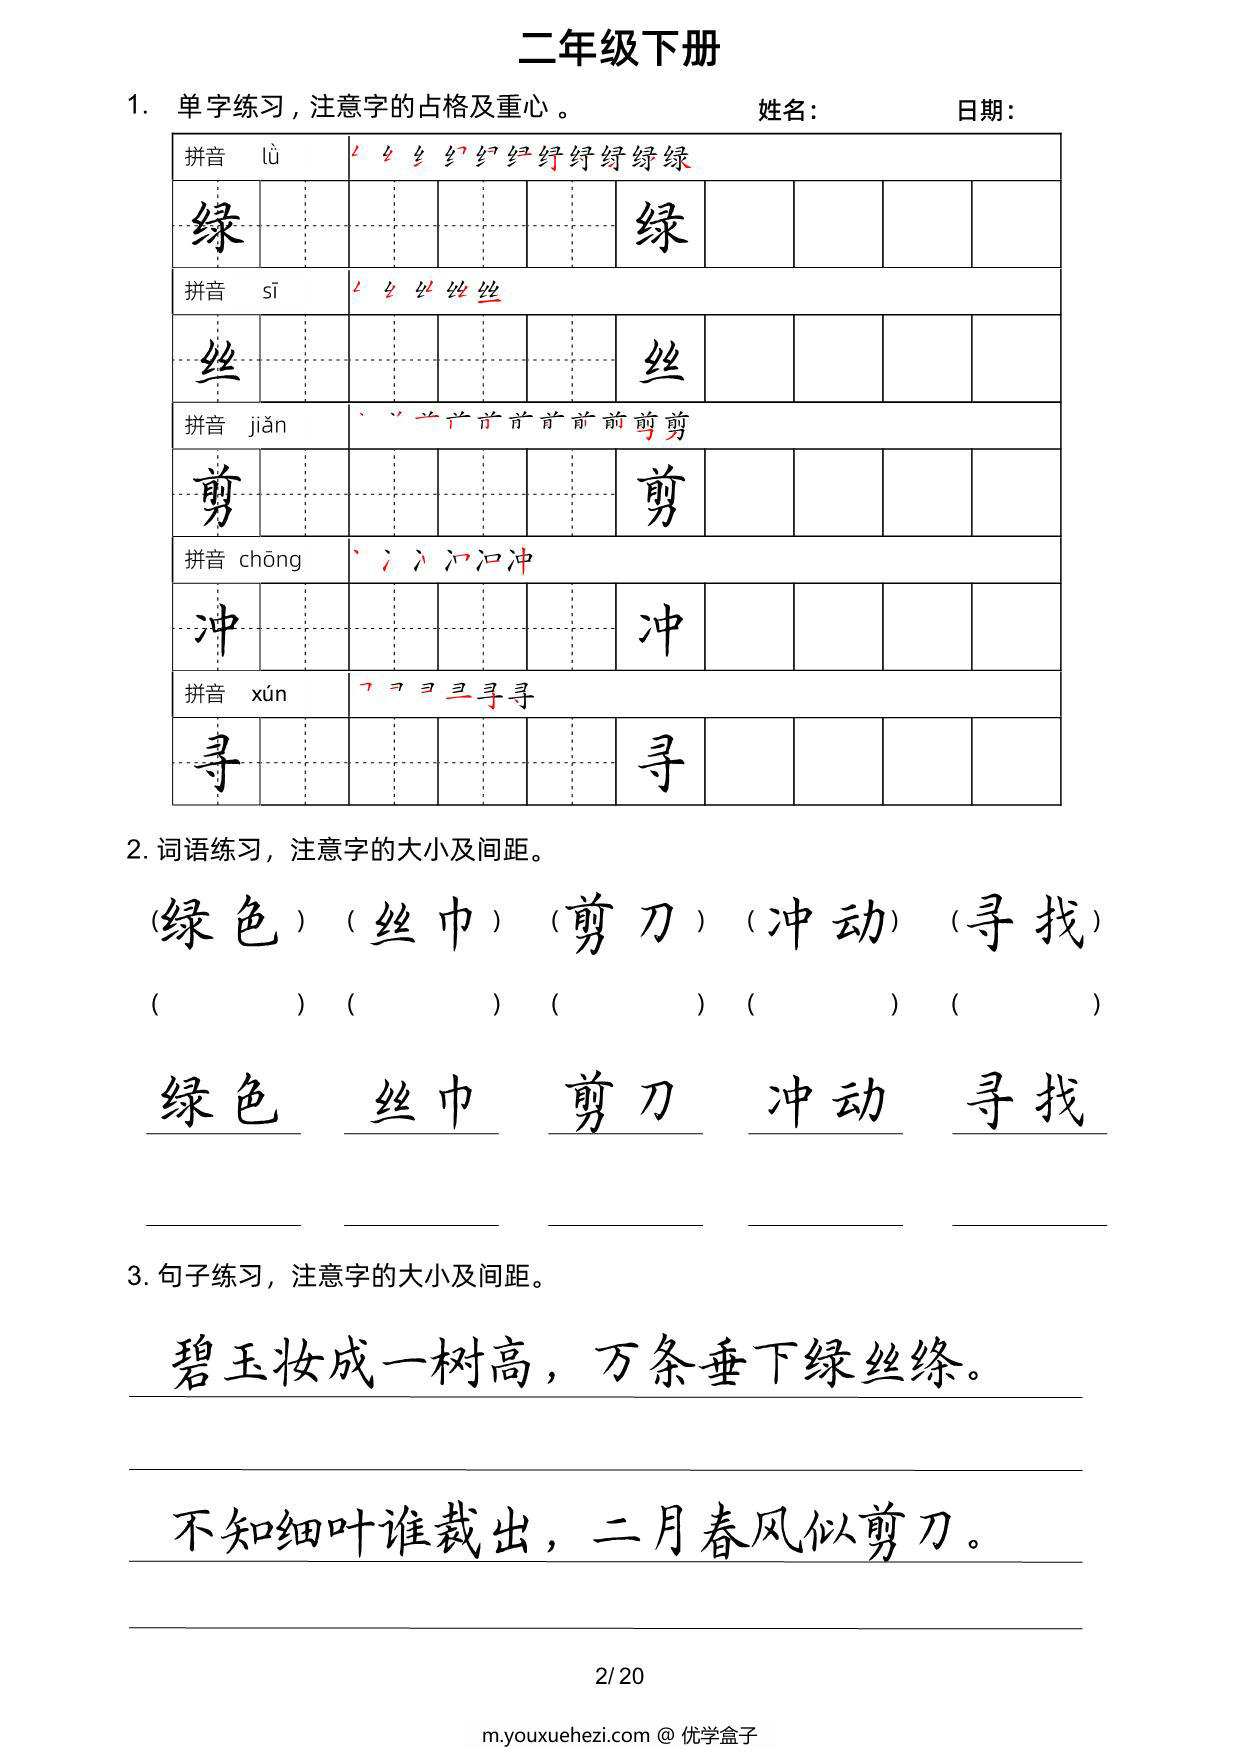 二年级下册
1. 单字练习，注意字的占格及重心。 姓名： 日期：
拼音 lǜ 绿
绿 绿
拼音 sī 丝
丝 丝
拼音 jiǎn 剪
剪 剪
拼音 chōng 冲
冲 冲
拼音 xún 寻
寻 寻
2. 词语练习，注意字的大小及间距。
(绿色) (丝巾) (剪刀) (冲动) (寻找)
( ) ( ) ( ) ( ) ( )
绿色 丝巾 剪刀 冲动 寻找
3. 句子练习，注意字的大小及间距。
碧玉妆成一树高，万条垂下绿丝绦。
不知细叶谁裁出，二月春风似剪刀。
2/ 20
m.youxuehezi.com @ 优学盒子